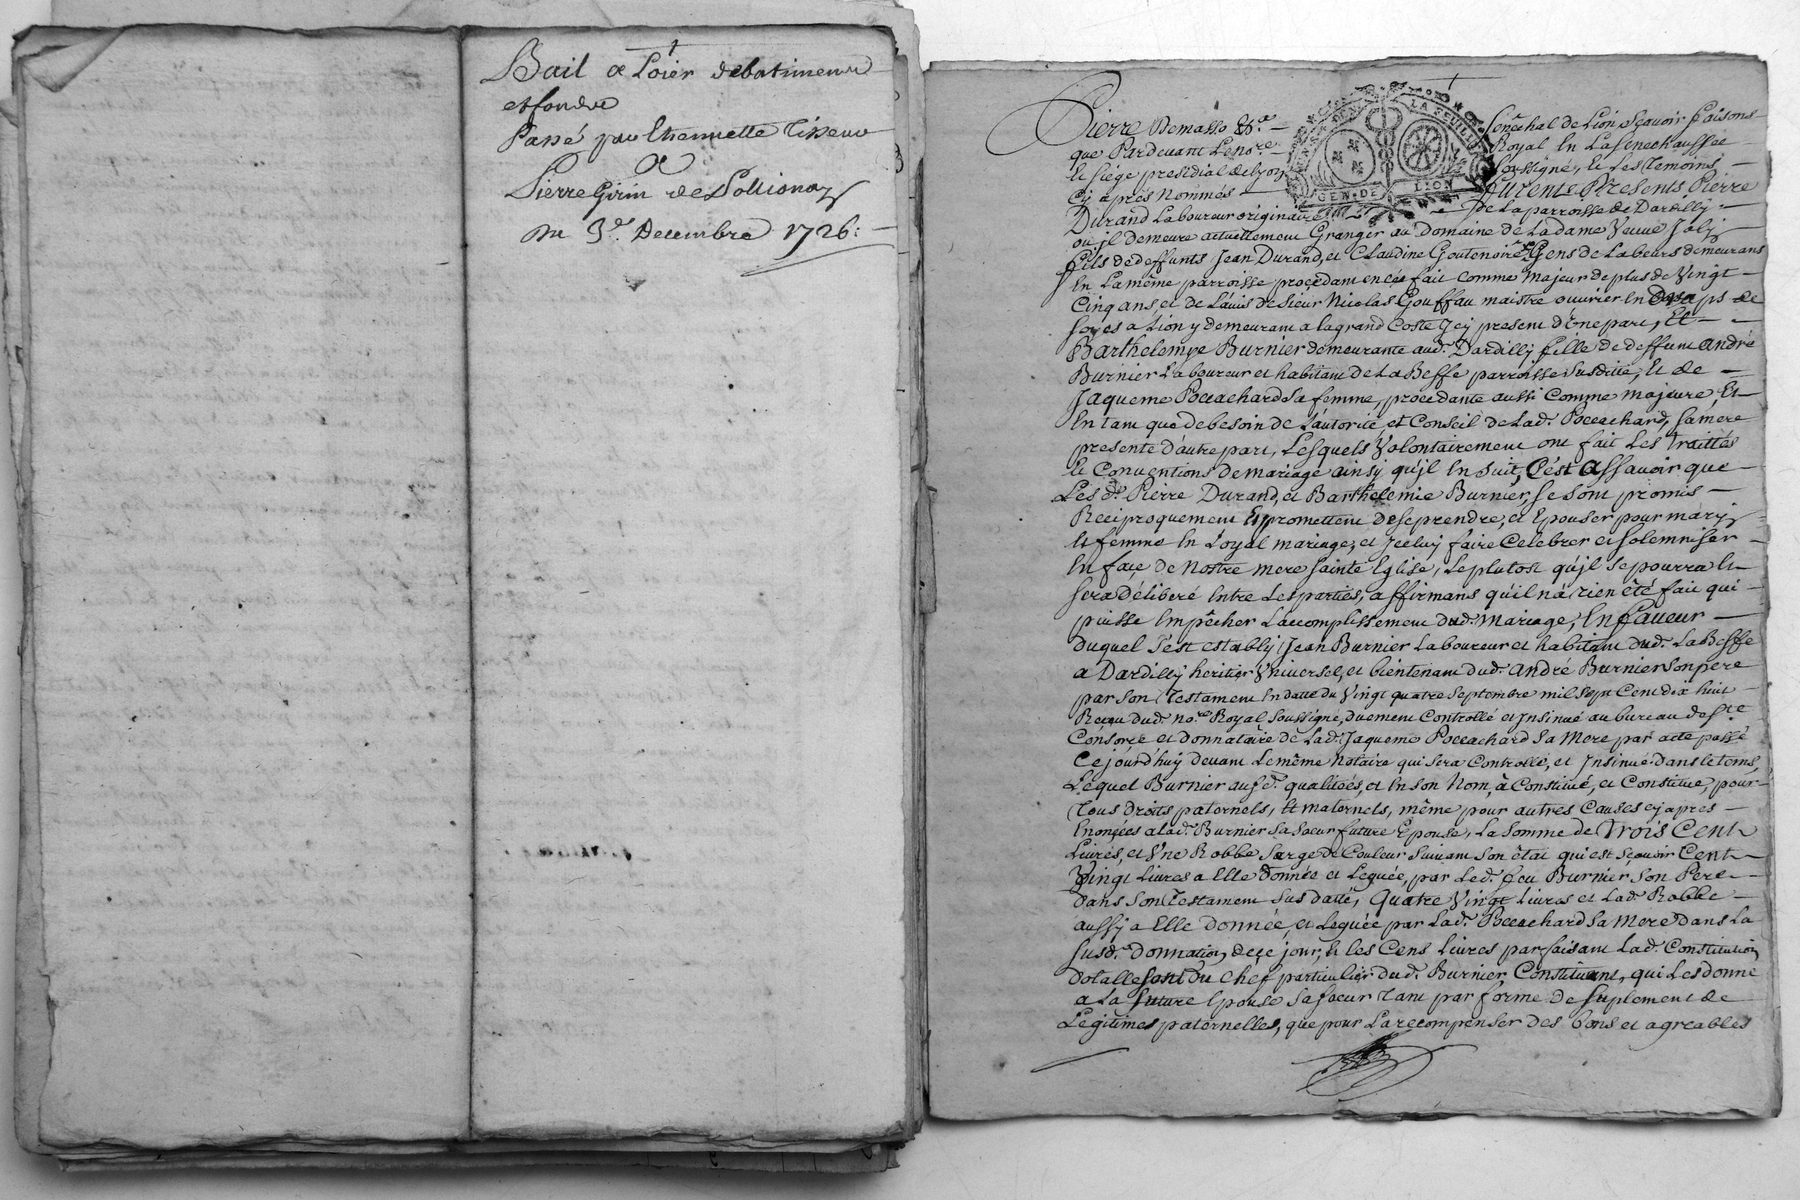 Bail a Loier debatimens
et fonds
Passé par Ethennette Tisseur
A
Pierre Girin de Pollionay
Du 3e. Decembre 1726:
Pierre Demasso &c.a Sénéchal de Lion Sçavoir faisons
que Pardevant Lenore. Royal En La Senechaussée
Et Siége presidial de Lyon Soussigné, Et Les Temoins
Cy après Nommés furents Presents Pierre
GEN. DE LION
LA FEUILLE
Durand Laboureur originaire de La parroisse de Dardilly
ou il demeure actuellement Granger au Domaine de La dame Veuve Joly
fils de deffunts Jean Durand, et Claudine Goutenoire Gens de Labeurs demeurans
En La même parroisse procedant en ce fait comme majeur de plus de Vingt
Cinq ans, et de L'avis de Sieur Nicolas Gouffau maistre ouvrier En Draps de
Soyes a Lion y demeurant a la grand Coste Jcy present d'une part, Et
Barthelemye Burnier demeurante aud. Dardilly fille de deffunt André
Burnier Laboureur et habitant de La Beffe parroisse Susditte, Et de
Jaqueme Poccachard sa femme, procedante aussi comme majeure, Et
En tant que de besoin de L'autorité et Conseil de Lad. Poccachard, sa mere
presente d'autre part, Lesquels Volontairement ont fait Les traittés
Et Conventions de mariage ainsy qu'il En Suit, C'ést Assavoir que
Les d. Pierre Durand, et Barthelemie Burnier, se sont promis
Reciproquement Et promettent de se prendre, et Epouser pour mary
Et femme En Loyal mariage, et Jceluy faire Celebrer et Solemniser
En façe de Nostre mere Sainte Eglise, Le plutost qu'jl se pourra Et
Sera Déliberé Entre Les parties, affirmans qu'il n'á rien êté fait qui
puisse Empêcher L'accomplissement dud. mariage, En faveur
Duquel s'est estably Jean Burnier Laboureur et habitant dud. La Beffe
a Dardilly heritier Vniversel, et bientenant dud. André Burnier son pere
par son Testament En datte du Vingt quatre Septembre mil sept Cent dix huit
Receu dud. no.re Royal Soussigné, duement Controllé et Jnsinué au bureau de Ste.
Consorçe et donnataire de Lad. Jaqueme Poccachard sa Mere par acte passé
Cejourd'huy devant Le même Notaire qui sera Controllé, et Jnsinué dans le tems,
Lequel Burnier ausd. qualités, et En son Nom, à Constitué, et Constitue, pour
Tous droits paternels, Et maternels, même pour autres Causes cy apres
Enonçées a Lad. Burnier Sa Soeur future Epouse, La Somme de Trois Cent
Livres, et Vne Robbe Sarge de Couleur Suivant Son êtat qui est Sçavoir Cent
Vingt Livres a Elle donnée et Leguée, par Led. feu Burnier Son Pere
dans Son Testament Sus datté, Quatre Vingt Livres et Lad. Robbe
aussy a Elle Donnée, et Leguée par Lad. Poccachard sa Mere dans La
Susd. donnation de ce jour, Et Les Cens Livres parfaisant Lad. Constitution
Dotalle sont du Chef particulier dud. Burnier Constituant, qui Les donne
a La future Epouse Sa Soeur tant par forme de Suplement de
Légitimes paternelles, que pour La recompenser des bons et agreables